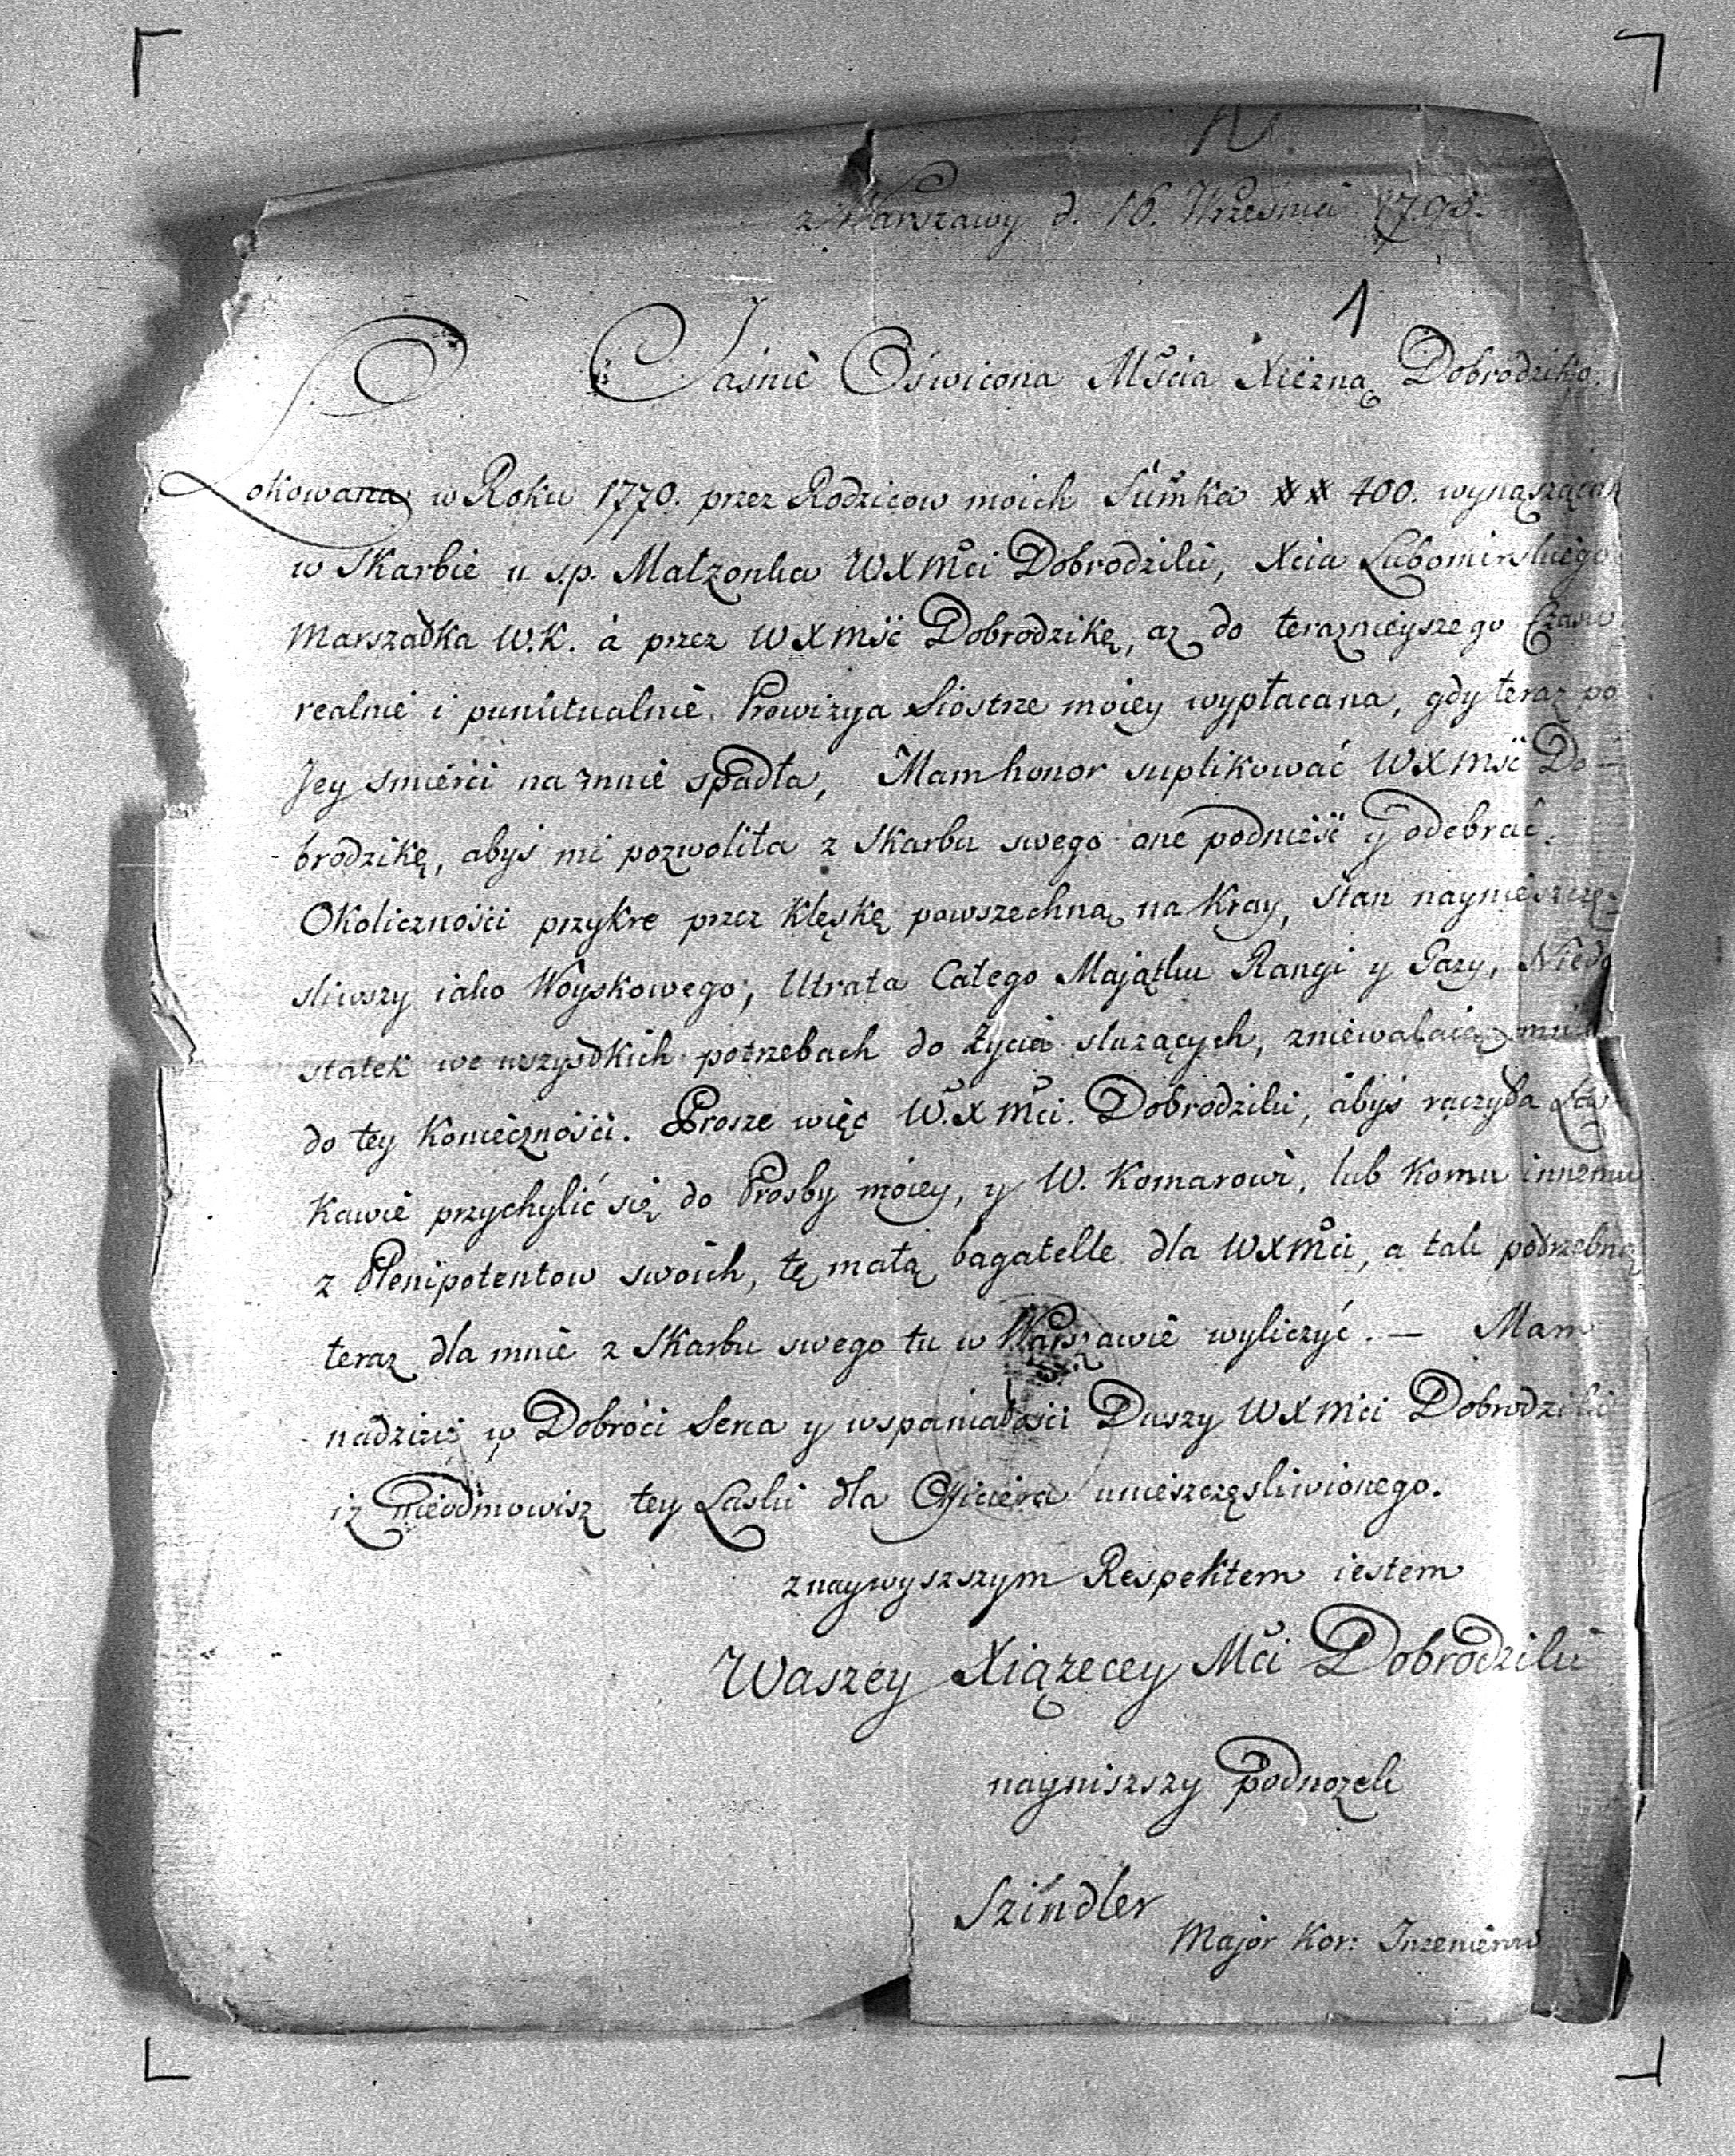 z Warszawy d. 16. Wrzesnia
1
Jaśnie Oświcona Mścia Xiezną Dobrodziko.
Lokowana w Roku 1770. przez Rodzicow moich Sumka xx 400. wynąsząca
w Skarbie u s.p. Małzonka WXMci Dobrodziki, Xcia Lubomirskiego
Marszałka W.K. á przez WXMść Dobrodzikę, aż do teraznieyszego Czasu
realnie i punktualnie Prowizya Siostrze moiey wypłacana, gdy teraz po
Jey smierci na mnie spadła, Mam honor suplikować WXMść Do-
brodzikę, abyś mi pozwoliła z Skarbu swego one podnieść y odebrać.
Okoliczności przykre przez klęskę powszechną na Kray, Stan naynieszczę-
sliwszy iako Woyskowego, Utrata Całego Majątku Rangi y Gazy, Niedo
statek we wszystkich potrzebach do życia służących, zniewalaią mnie
do tey Konieczności. Prosze więc W.X Mci. Dobrodziki, abyś raczyła Łas-
kawie przychylić się do Prosby moiey, y W. Komarowi, lub komu innemu
z Plenipotentow swoich, tę małą bagatelle dla WXMci, a tak potrzebną
teraz dla mnie z Skarbu swego tu w Warszawie wyliczyć. — Mam
nadzieię w Dobroci Serca y wspaniałości Duszy WXMci Dobrodziki
iż nieodmowisz tey Łaski dla Officiera unieszczęsliwionego.
z naywyszszym Respektem iestem
Waszey Xiązecey Mci Dobrodziki
nayniszszy podnozek
Szindler
Major Kor: Inzenierow